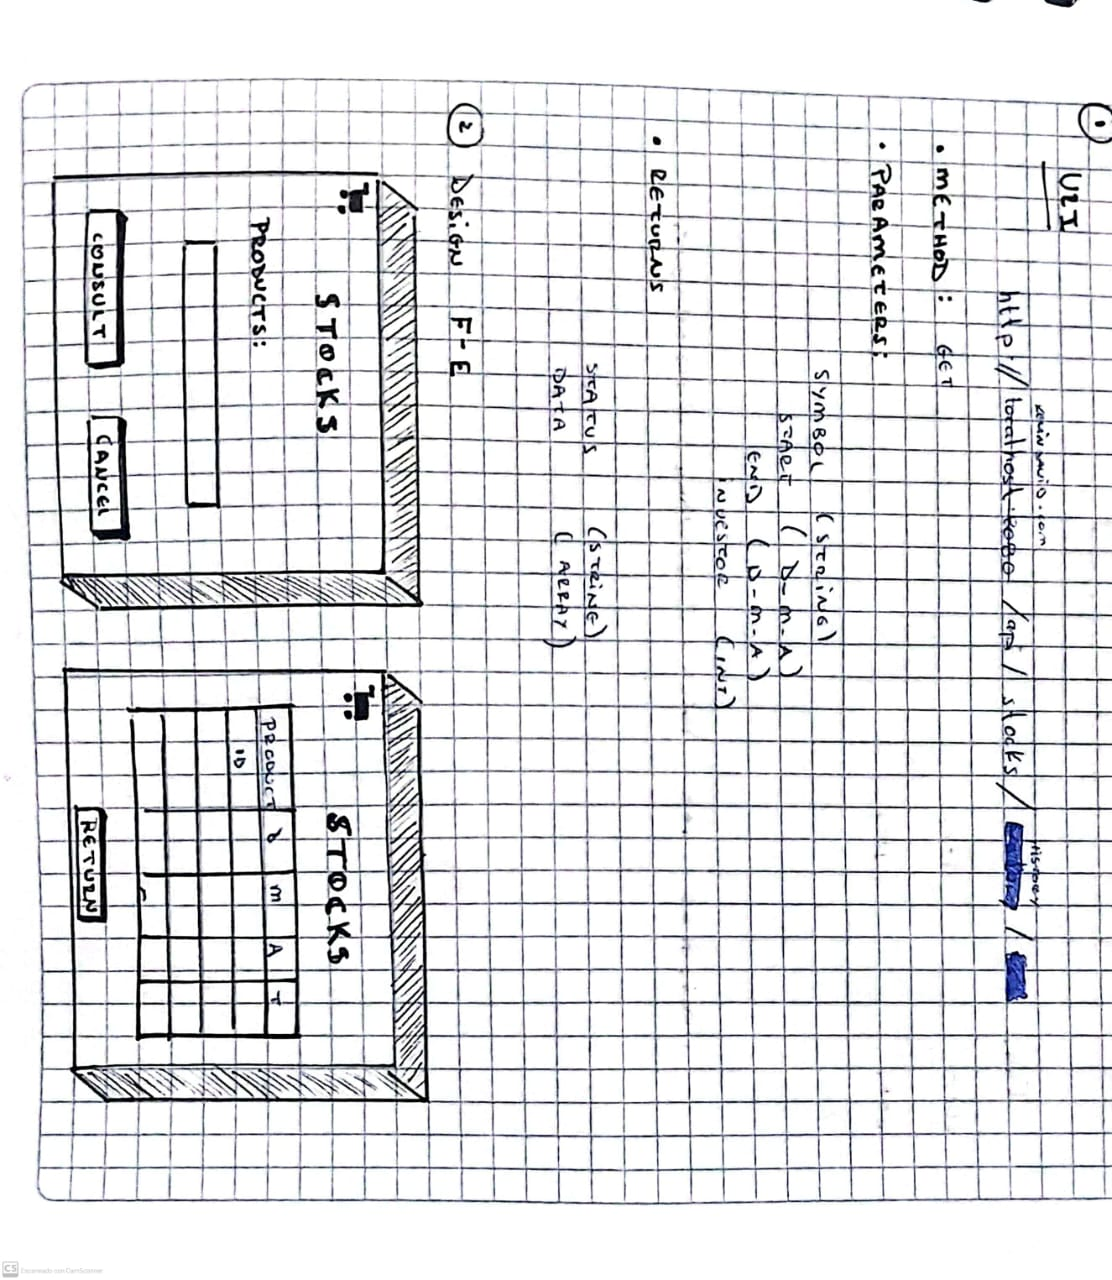 1
URI
kevinsavio.com
http://localhost:8080/api/stocks/
history
/
• METHOD: GET
• PARAMETERS:
SYMBOL (STRING)
START (D-M-A)
END (D-M-A)
INVESTOR (INT)
• RETURNS
STATUS (STRING)
DATA (ARRAY)
2 DESIGN F-E
STOCKS
PRODUCTS:
CONSULT CANCEL
STOCKS
PRODUCT d m A T
ID
RETURN
CS Escaneado con CamScanner